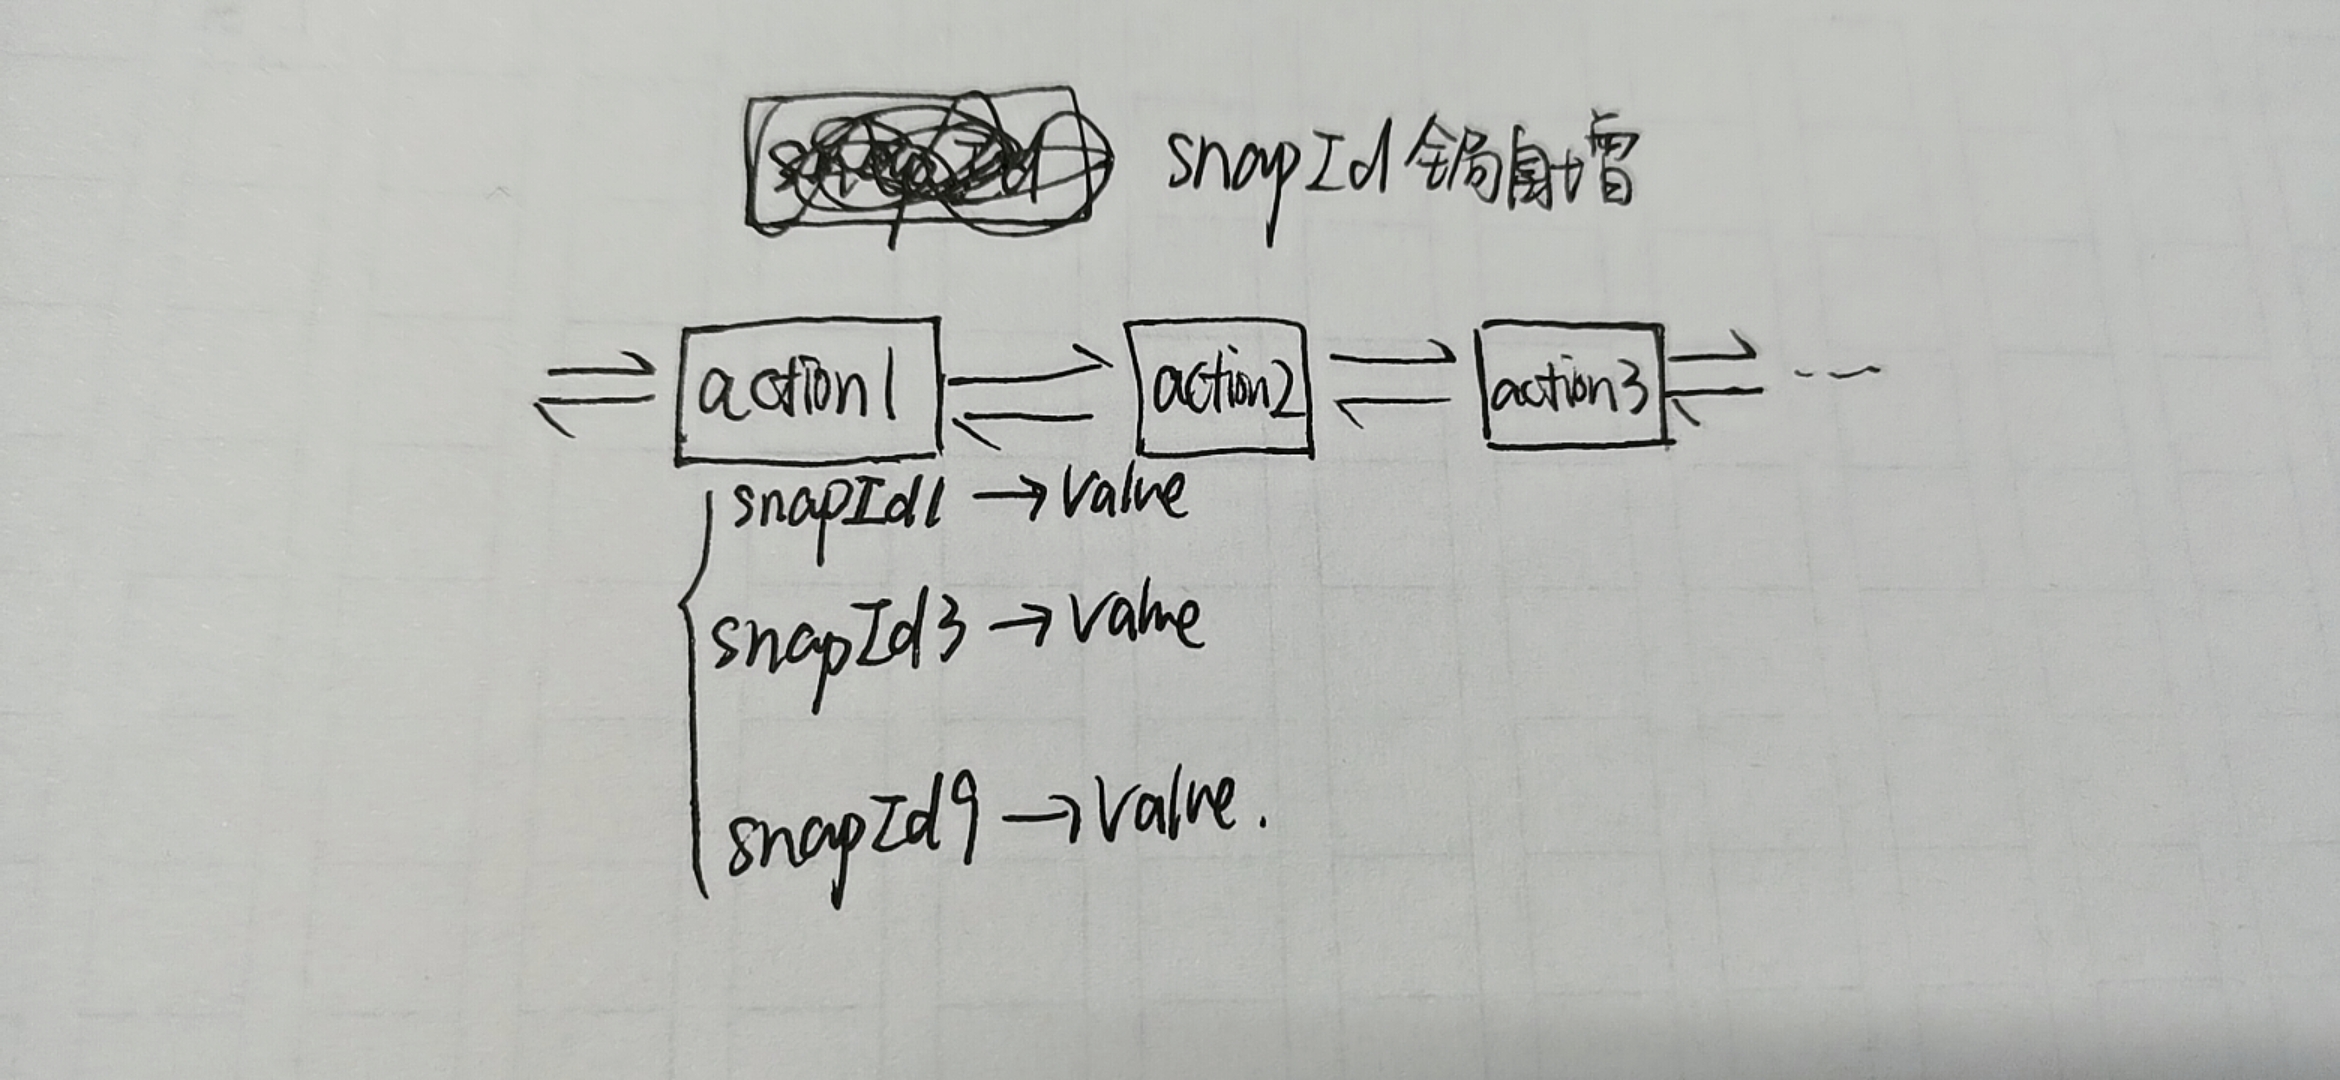 snapId全局自增
action1 action2 action3 ---
snapId1 → value
snapId3 → value
snapId9 → value.